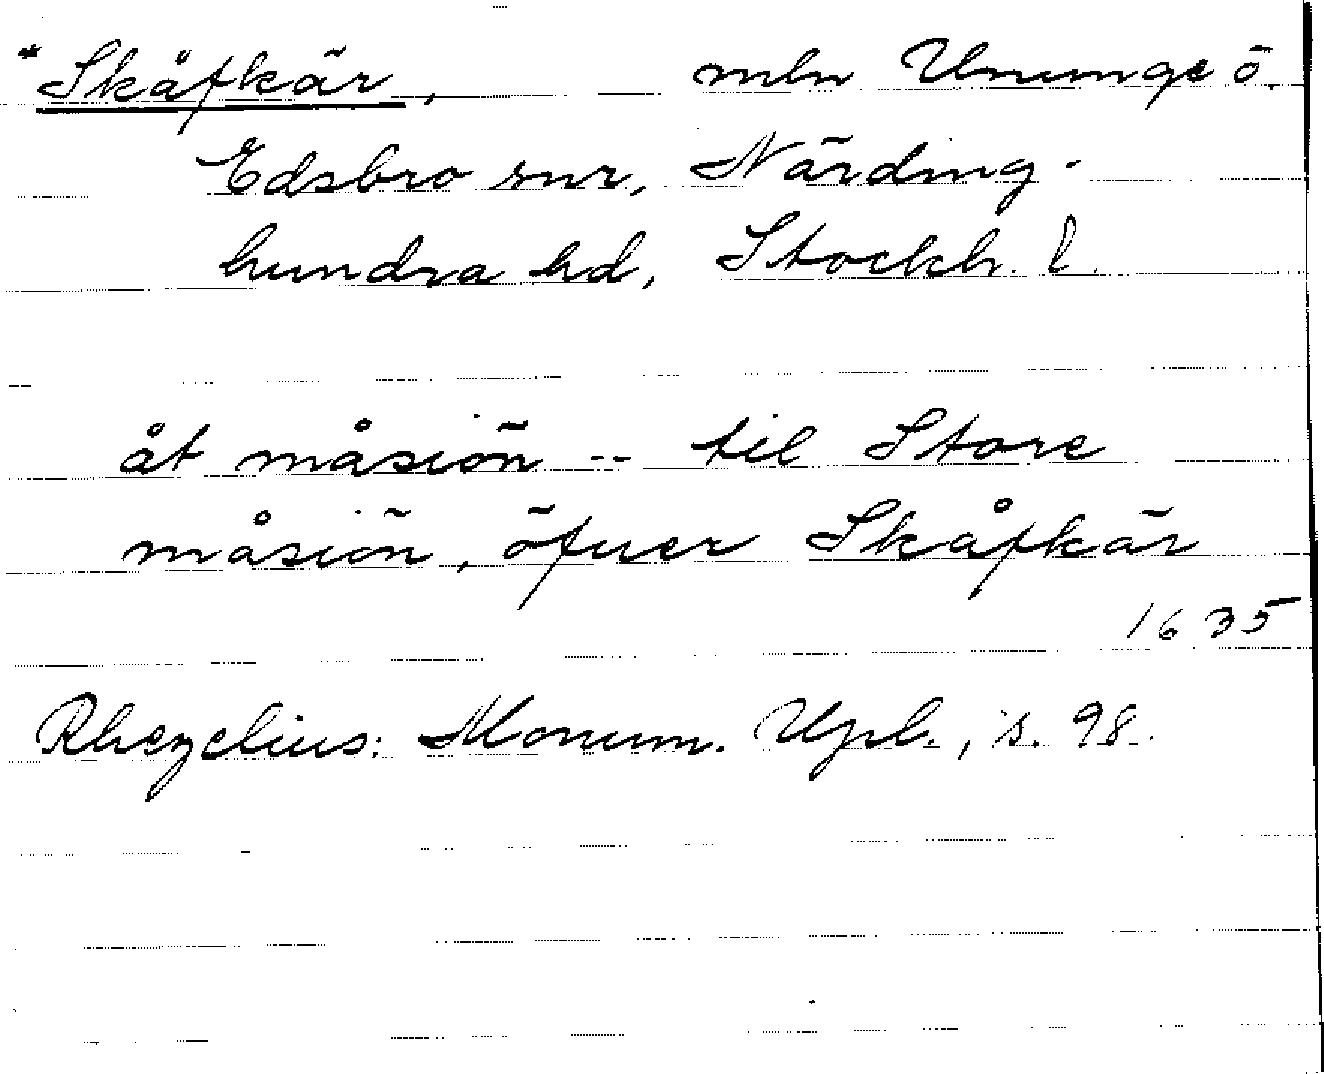 *Skåfkär, mln Ununge o.
Edsbro snr, Närding-
hundra hd, Stockh. l.
åt måsiön -- til Store
måsiön, öfuer Skåfkär
1635
Rhezelius: Monum. Upl., s. 98.